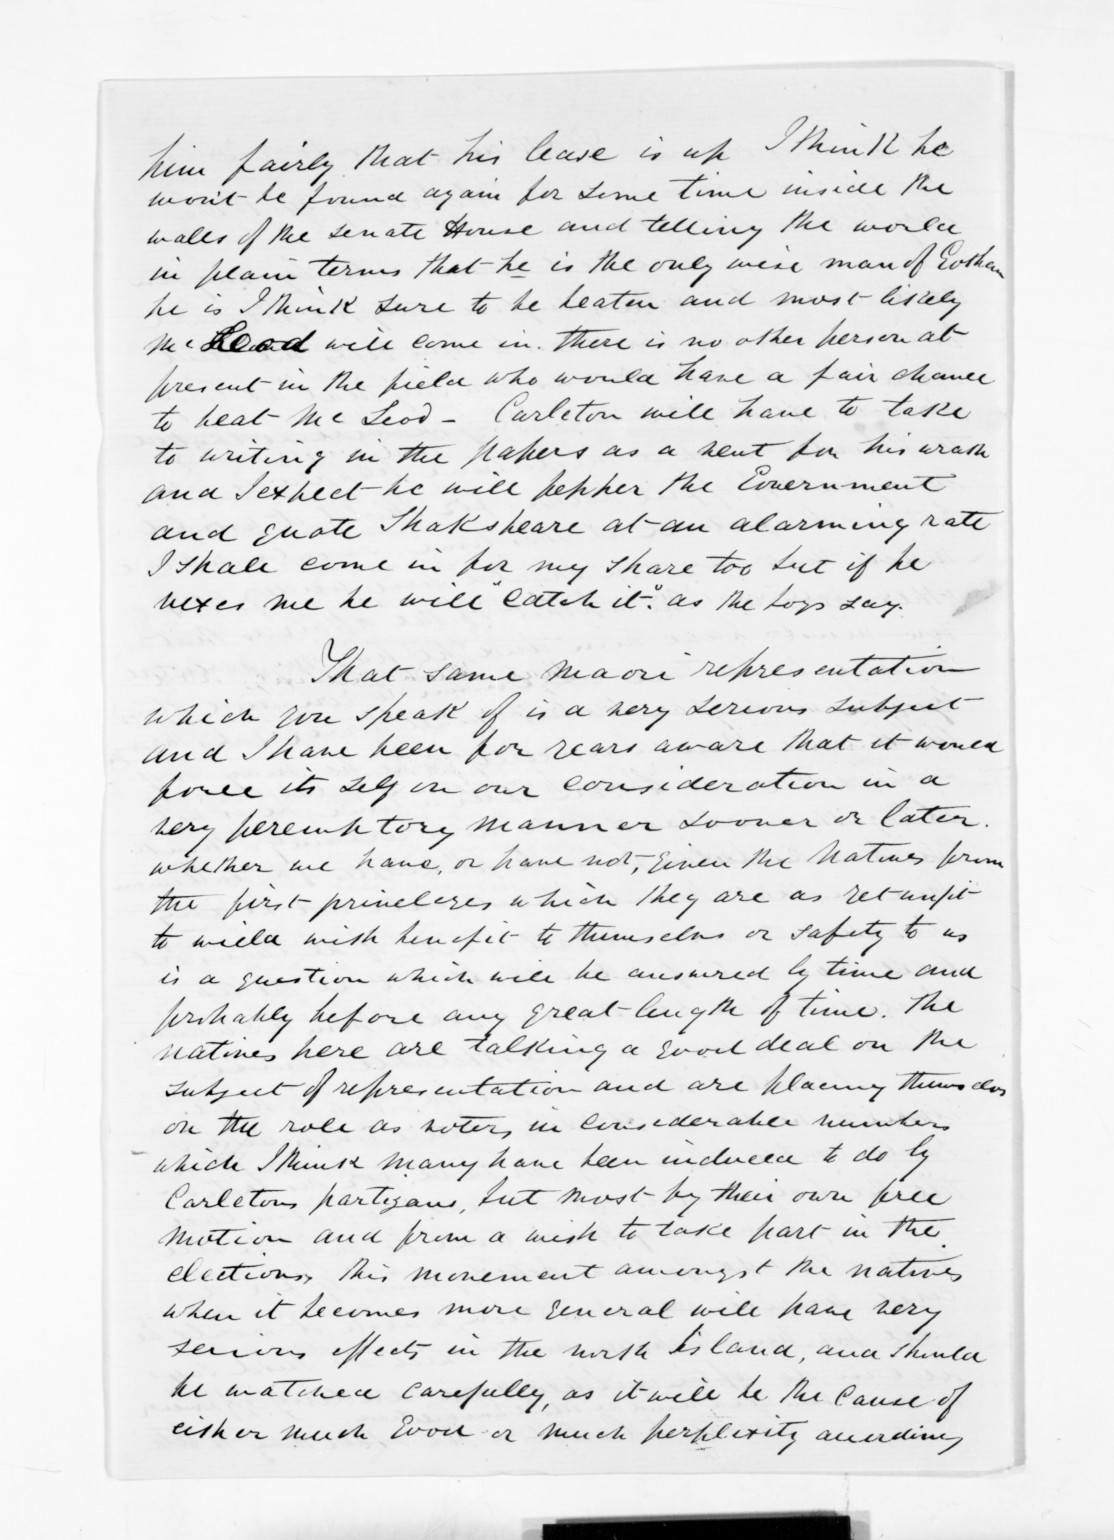 him fairly that his lease is up I think he
won't be found again for some time inside the
walls of the senate House and telling the world
in plain terms that he is the only wise man of Gotham
he is I think sure to be beaten and most likely
Mc Leod will come in. there is no other person at
present in the field who would have a fair chance
to beat Mc Leod – Carleton will have to take
to writing in the papers as a vent for his wrath
and I expect he will pepper the Government
and quote Shakspeare at an alarming rate
I shall come in for my share too but if he
vexes me he will "catch it". as the boys say.
That same Maori representation
which you speak of is a very serious subject
and I have been for years aware that it would
force its self on our consideration in a
very peremptory manner sooner or later.
whether we have, or have not, given the Natives from
the first priveleges which they are as yet unfit
to wield with benefit to themselves or safety to us
is a question which will be answered by time and
probably before any great length of time. The
natives here are talking a good deal on the
subject of representation and are placing themselves
on the role as voters, in considerable numbers
which I think many have been induced to do by
Carletons partizans, but most by their own free
motion and from a wish to take part in the
elections, this movement amongst the natives
when it becomes more general will have very
serious effects in the north Island, and should
be watched carefully, as it will be the cause of
either much Good or much perplexity according